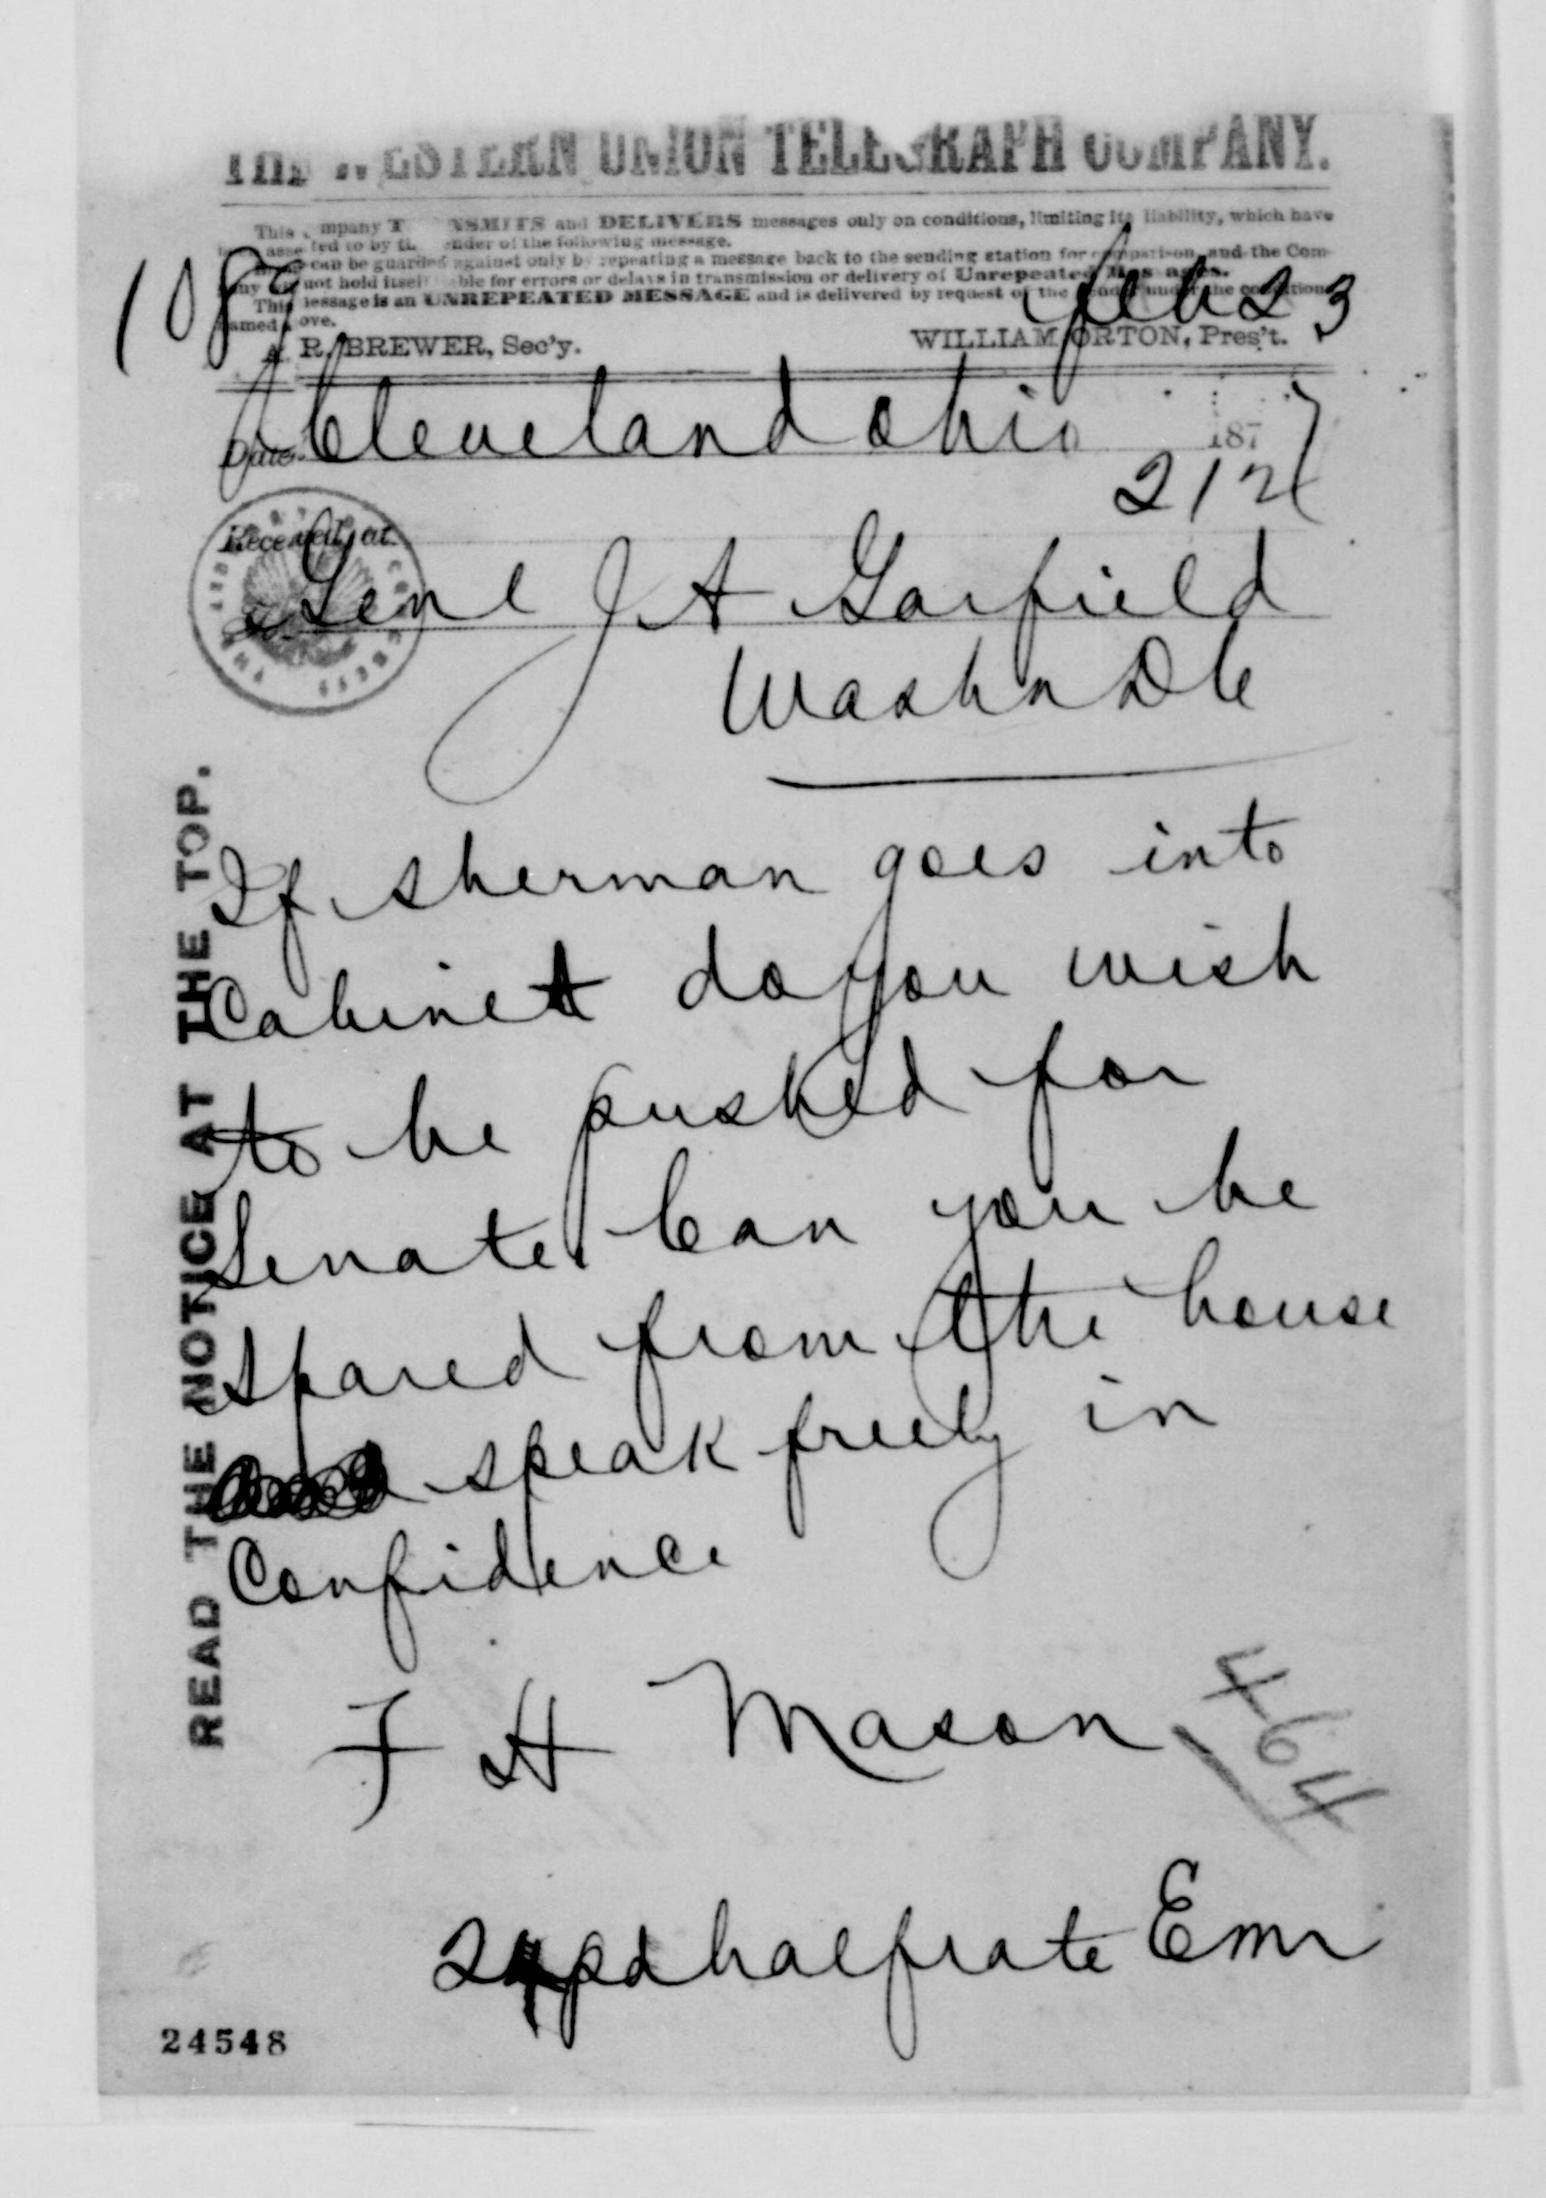 THE WESTERN UNION TELEGRAPH COMPANY.
This Company TRANSMITS and DELIVERS messages only on conditions, limiting its liability, which have
been assented to by the sender of the following message.
can be guarded against only by repeating a message back to the sending station for comparison, and the Com-
pany will not hold itself liable for errors or delays in transmission or delivery of Unrepeated Messages.
This message is an UNREPEATED MESSAGE and is delivered by request of the sender under the conditions
named above.
108
Feb 23
A. R. BREWER, Sec'y.
WILLIAM ORTON, Pres't.
Dated Cleveland Ohio 187
212
Received at
Genl J A Garfield
Washn DC
If sherman goes into
Cabinet do you wish
to be pushed for
Senate. Can you be
spared from the house
speak freely in
Confidence
F H Mason
464
24 pd half rate Emr
READ THE NOTICE AT THE TOP.
24548